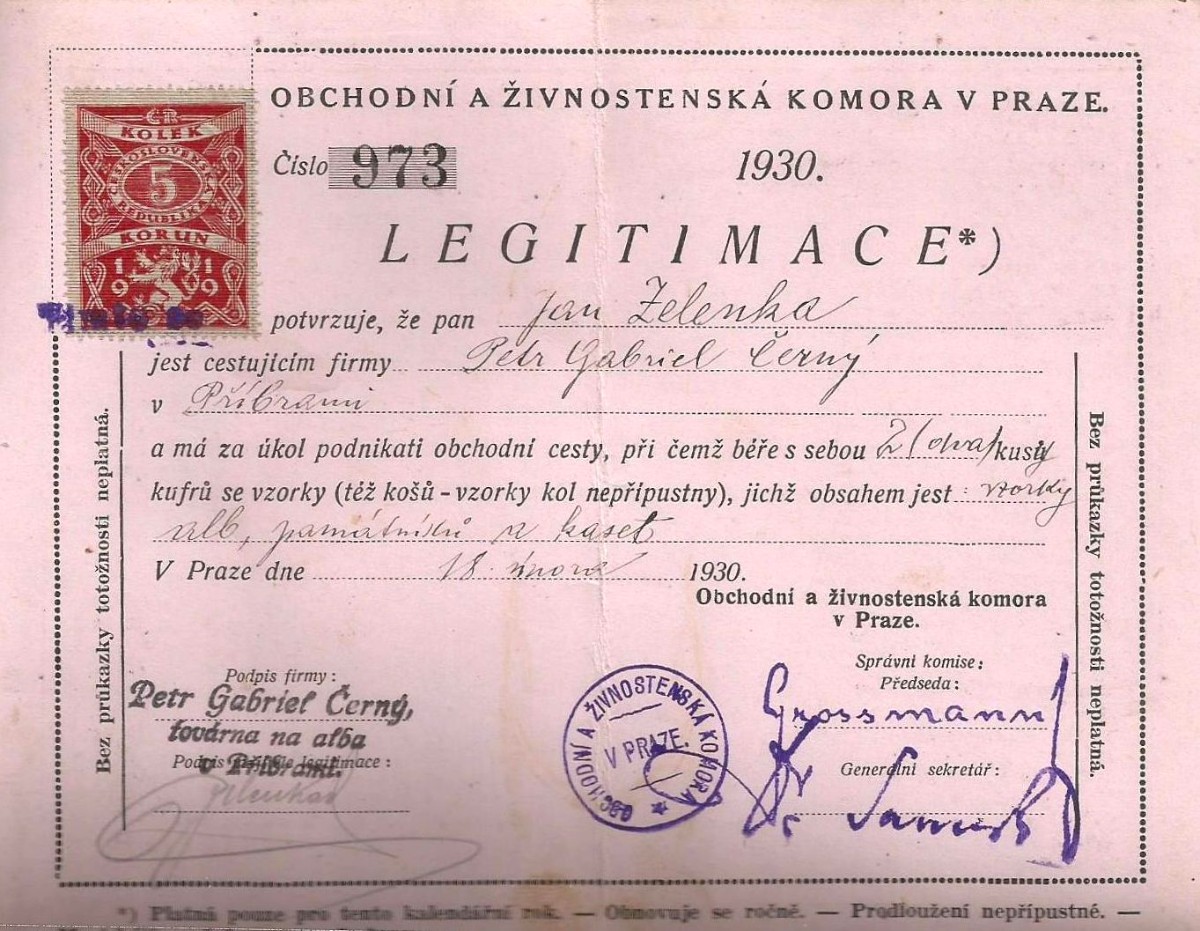 OBCHODNÍ A ŽIVNOSTENSKÁ KOMORA V PRAZE.
ČR
KOLEK
ČESKOSLOVENSKÁ
5
REPUBLIKA
KORUN
1919
Číslo 973 1930.
LEGITIMACE*)
potvrzuje, že pan Jan Zelenka
jest cestujícím firmy Petr Gabriel Černý
v Příbrami
a má za úkol podnikati obchodní cesty, při čemž béře s sebou 2 (dva) kusy
kufrů se vzorky (též košů - vzorky kol nepřípustny), jichž obsahem jest: vzorky
alb, památníků a kaset
V Praze dne 18. února 1930.
Obchodní a živnostenská komora
v Praze.
Bez průkazky totožnosti neplatná.
Bez průkazky totožnosti neplatná.
Podpis firmy:
Petr Gabriel Černý,
továrna na alba
v Příbrami.
Podpis legitimace:
OBCHODNÍ A ŽIVNOSTENSKÁ KOMORA
V PRAZE.
Správní komise:
Předseda:
Grossmann
Generální sekretář:
Dr
*) Platná pouze pro tento kalendářní rok. — Obnovuje se ročně. — Prodloužení nepřípustné. —